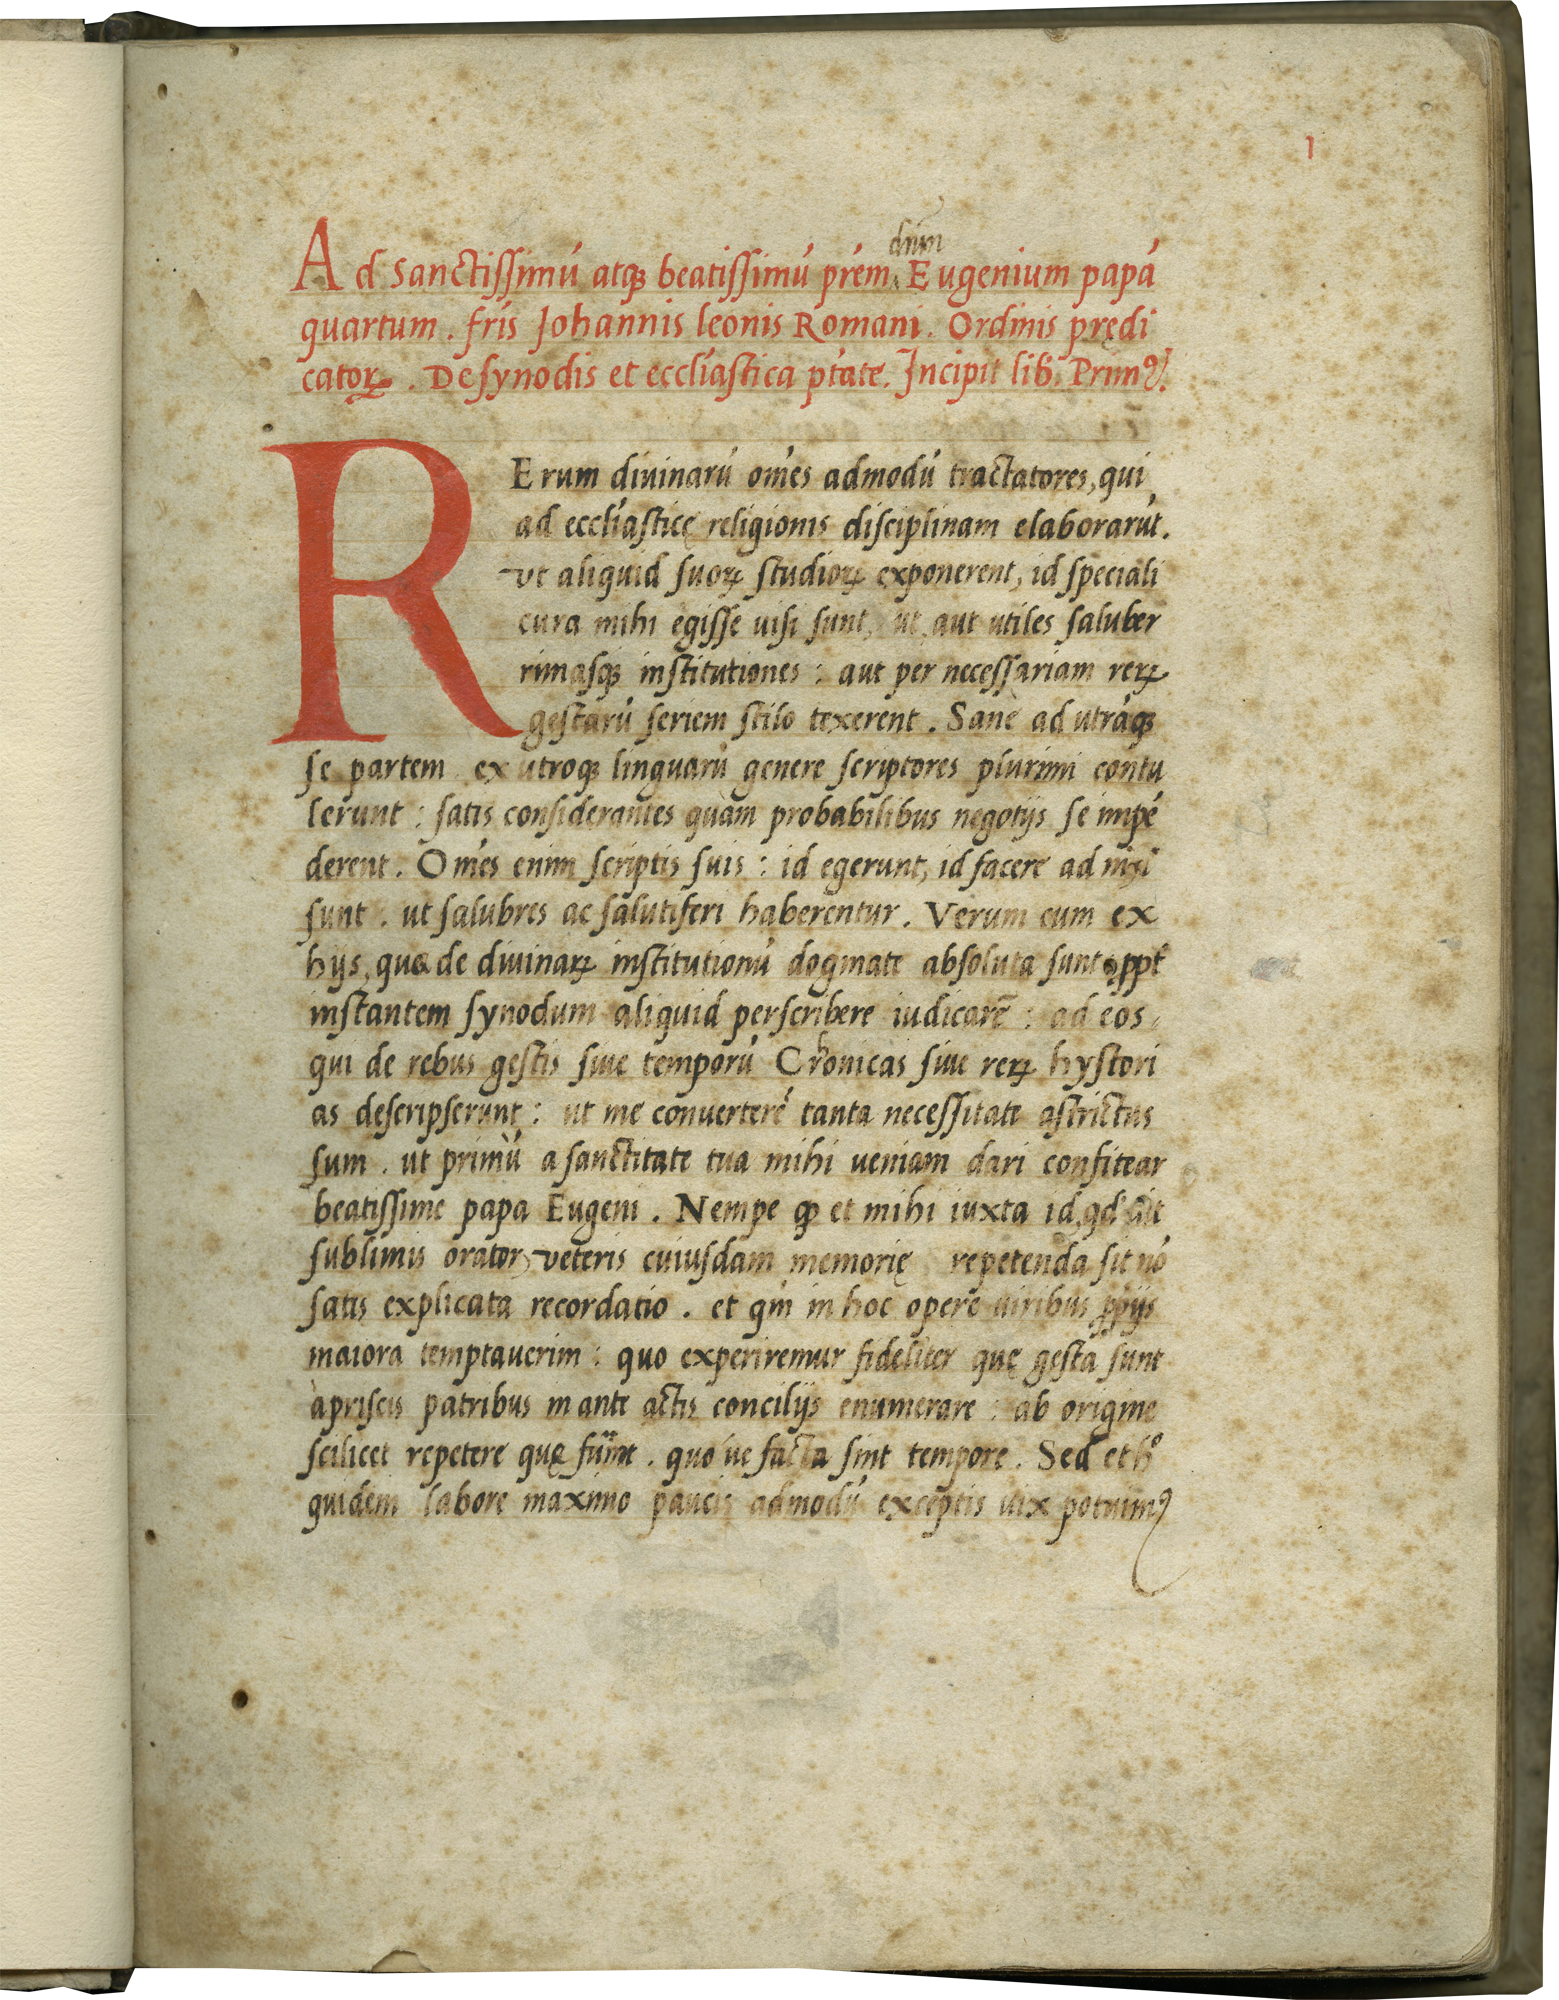 1
dn̄m
Ad Sanctissimú atqꝫ beatissimú prém Eugenium papá
quartum. frís Johannis leonis Romani. Ordinis prędi
catoꝝ. De synodis et ecclíastica ptáte. Incipit lib. Primꝰ.
RErum diuinarú omés admodú tractatores, qui
ad ecclíasticę religionis disciplinam elaborarút.
vt aliquid suoꝝ studioꝝ exponerent, id speciali
cura mihi egisse uisi sunt, ut aut utiles saluber
rimasqꝫ institutiones : aut per necessariam reꝝ
gestarú seriem stilo texerent. Sane ad utráqꝫ
se partem ex utroqꝫ linguarú genere scriptores plurimi contu
lerunt : satis considerantes quàm probabilibus negotijs se impé
derent. Omés enim scriptis suis : id egerunt, id facere ad nixi
sunt. ut salubres ac salutiferi haberentur. Verum cum ex
hijs, quæ de diuinaꝝ institutionú dogmate absoluta sunt ꝓpt̄
instantem synodum aliquid perscribere iudicarē : ad eos,
qui de rebus gestis siue temporú Chronicas siue reꝝ hystori
as descripserunt : ut me conuerteré tanta necessitate astrictus
sum. ut primú a sanctitate tua mihi ueniam dari confitear
beatissime papa Eugeni. Nempe ꝙ et mihi iuxta id, qd́ ait
sublimis orator, veteris cuiusdam memorię repetenda sit nó
satis explicata recordatio. et qm̄ in hoc opere uiribus ꝓprijs
maiora temptauerim : quo experiremur fideliter quę gesta sunt
à priscis patribus in ante actis concilijs enumerare : ab origine
scilicet repetere quę fuint. quo ue facta sint tempore. Sed et hͦ
quidem labore maximo paucis admodú exceptis uix potuimꝰ